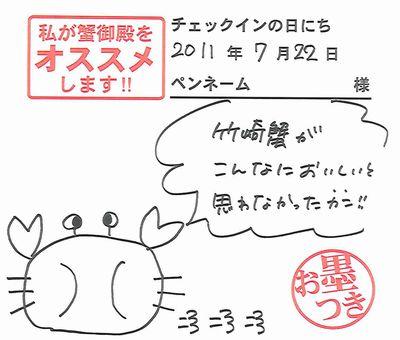 私が蟹御殿を
オススメ
します!!
チェックインの日にち
2011 年 7 月 22 日
ペンネーム 様
竹崎蟹が
こんなにおいしいと
思わなかったカニ!!
お墨つき